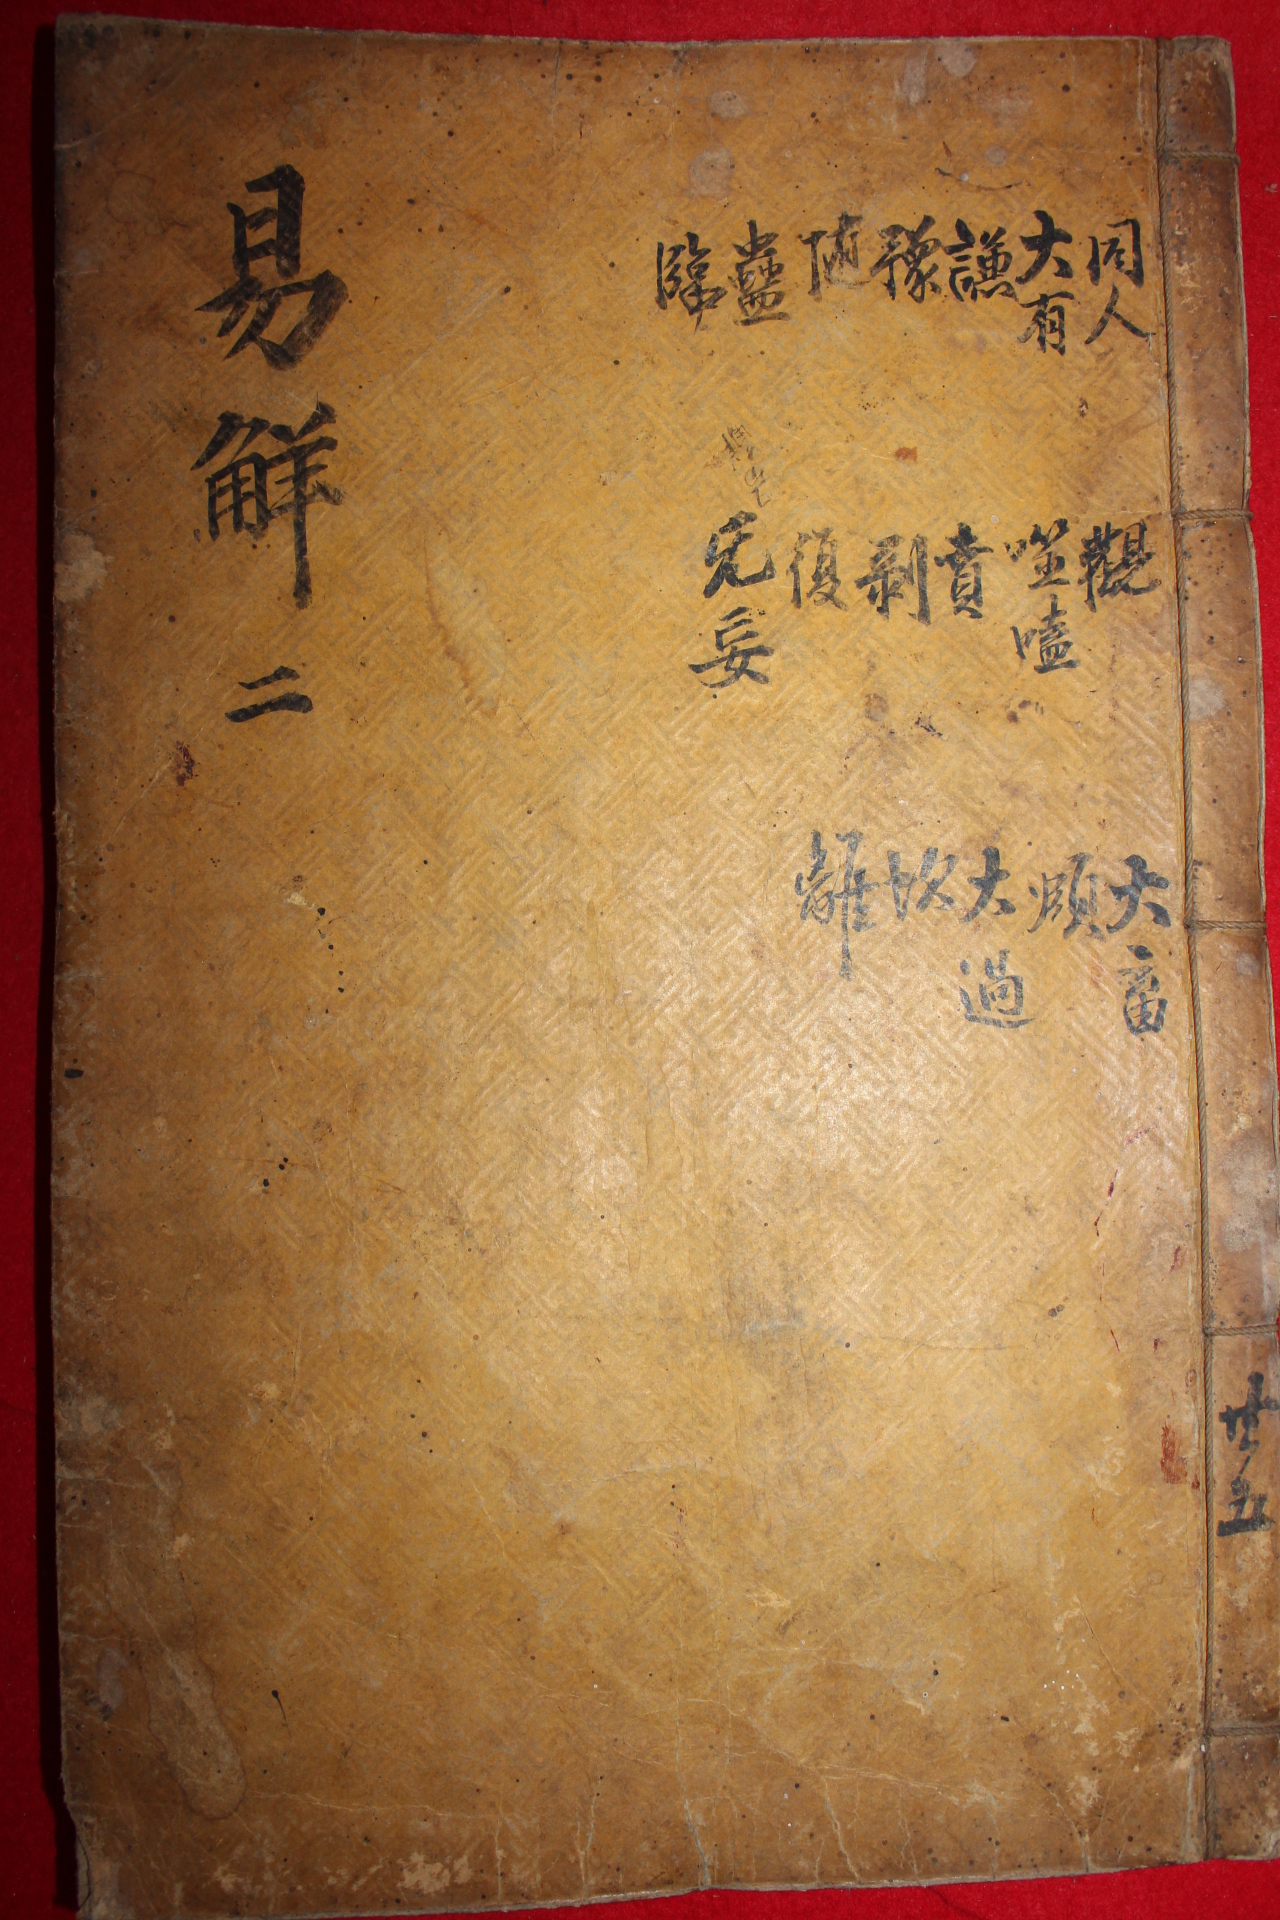 同人
大有
謙
豫
随
蠱
臨
觀
噬嗑
賁
剥
復
无妄
大畜
頤
大過
坎
離
易觧 二
共五